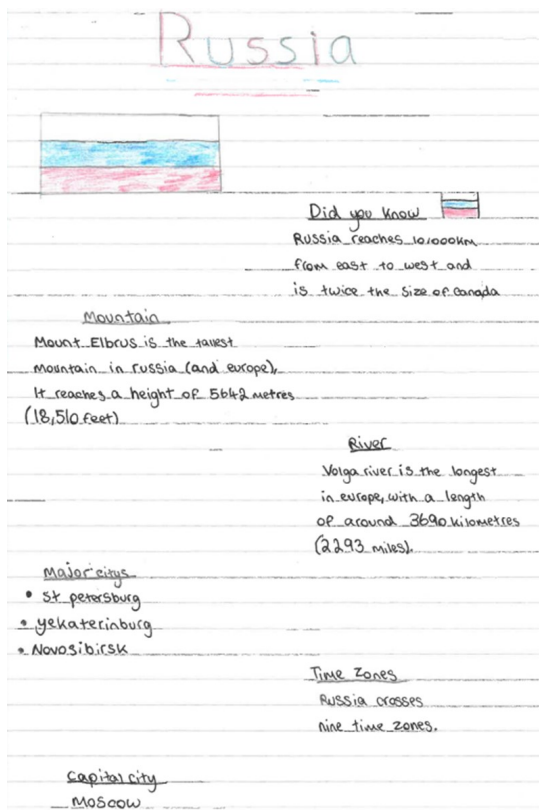 Russia
Did you know
Russia reaches 10,000km
from east to west and
is twice the size of Canada
Mountain
Mount Elbrus is the tallest
mountain in russia (and europe),
It reaches a height of 5642 metres
(18,510 feet)
River
Volga river is the longest
in europe, with a length
of around 3690 kilometres
(2293 miles).
Major citys
• St petersburg
• yekaterinburg
• Novosibirsk
Time Zones
Russia crosses
nine time zones.
Capital city
Moscow